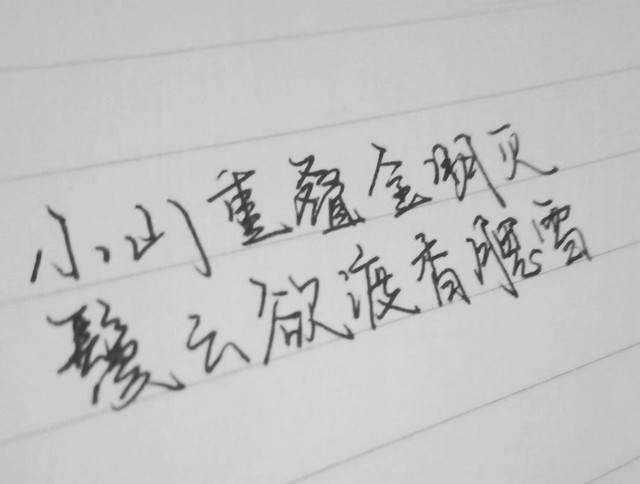 小山重叠金明灭
鬓云欲渡香腮雪